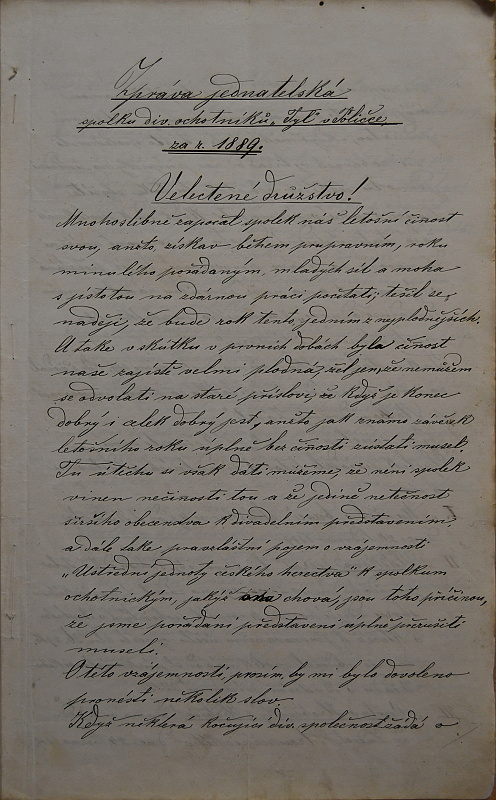 Zpráva jednatelská
spolku div. ochotníků „Tyl" v Poličce
za r. 1889.
Velectěné družstvo!
Mnohoslibně započal spolek náš letošní činost
svou, anžto získav během průpravním, roku
minulého pořádaným, mladých sil a moha
s jistotou na zdárnou práci počítati; těšil se
naději, že bude rok tento jedním z nejplodnějších.
A také v skutku v prvních dobách byla činost
naše zajisté velmi plodná, žel jen, že nemůžem
se odvolati na staré přísloví, že když je konec
dobrý i celek dobrý jest, anžto jak známo závěrek
letošního roku úplně bez činosti zůstati musel.
Tu útěchu si však dáti můžeme, že není spolek
vinen nečinosti tou a že jedině netečnost
širšího obecenstva k divadelním představením,
a dále také pravzláštní pojem o vzájemnosti
„Ústřední jednoty českého herectva" k spolkum
ochotnickým, jakýž ona chová, jsou toho příčinou,
že jsme pořádání představení úplně přerušiti
museli.
O této vzájemnosti, prosím, by mi bylo dovoleno
pronésti několik slov.
Když některá kočující div. společnost žádá o